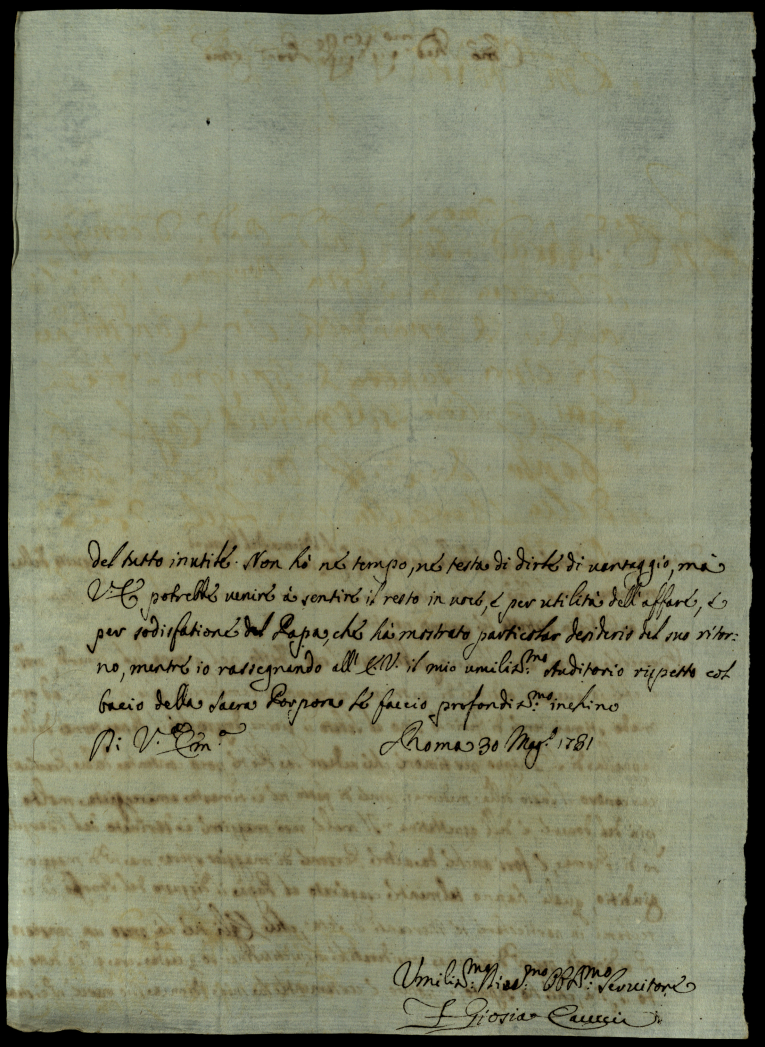 del tutto inutile. Non hò nè tempo, nè testa di dirle di vantaggio, mà
V. E. potrebbe venire à sentire il resto in voce, è per utilità dell'affare, è
per sodisfatione del Papa, che hà mostrato particolar desiderio del suo ritor:
no, mentre io rassegnando all' E. V. il mio umiliss.mo rispetto col
bacio della Sacra Porpora le faccio profondiss.mo inchino
Di V. Em.a Roma 30 Mag.o 1781
Umiliss.mo Servitore
Giosia